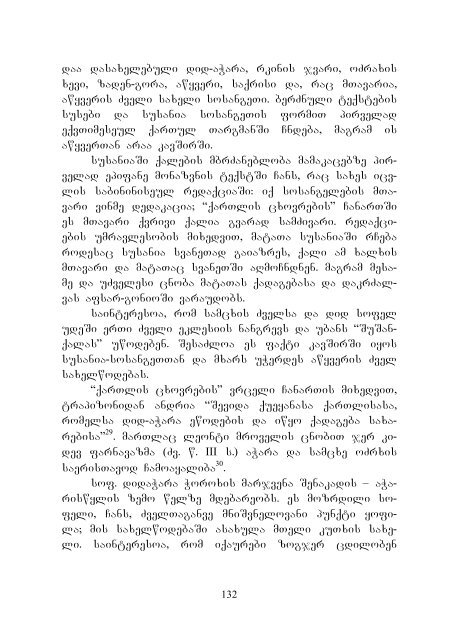 დაა დასახელებული დიდ-აჭარა, რკინის ჯვარი, ოძრახის
ხევი, ზადენ-გორა, აწყვერი, საკრისი და, რაც მთავარია,
აწყვერის ძველი სახელი სოსანგეთი. ბერძნული ტექსტების
სუსები და სუსანია სოსანგეთის ფორმით პირველად
ექვთიმესეულ ქართულ თარგმანში ჩნდება, მაგრამ ის
აწყვერთან არაა კავშირში.
სუსანიაში ქალების მბრძანებლობა მამაკაცებზე პირ-
ველად ეპიფანე მონაზვნის ტექსტში ჩანს, რაც სახეს იცვ-
ლის საბინინისეულ რედაქციაში: იქ სოსანგელების მთა-
ვარი ვინმე დედაკაცია; “ქართლის ცხოვრების” ჩანართში
ეს მთავარი ქვრივი ქალია გვარად სამძივარი. რედაქცი-
ების უმრავლესობის მიხედვით, მატათა სუსანიაში რჩება
როდესაც სუსანია სვანეთად გაიაზრეს, ქალი ამ ხალხის
მთავარი და მატათაც სვანეთში აღმოჩნდნენ. მაგრამ მესა-
მე და უძველესი ცნობა მატათას ქადაგებასა და დაკრძალ-
ვას აფსარ-გონიოში ვარაუდობს.
საინტერესოა, რომ სამცხის ძველსა და დიდ სოფელ
უდეში ერთი ძველი ეკლესიის ნანგრევს და უბანს “შუშან-
ქალას” უწოდებენ. შესაძლოა ეს ფაქტი კავშირში იყოს
სუსანია-სოსანგეთთან და მხარს უჭერდეს აწყვერის ძველ
სახელწოდებას.
“ქართლის ცხოვრების” ვრცელი ჩანართის მიხედვით,
ტრაპიზონიდან ანდრია “შევიდა ქუეყანასა ქართლისასა,
რომელსა დიდ-აჭარა ეწოდების და იწყო ქადაგება სახა-
რებისა”29. მართლაც ლეონტი მროველის ცნობით ჯერ კი-
დევ ფარნავაზმა (ძვ. წ. III ს.) აჭარა და სამცხე ოძრხის
საერისთავოდ ჩამოაყალიბა30.
სოფ. დიდაჭარა ჭოროხის მარჯვენა შენაკადის – აჭა-
რისწყლის ზემო წელზე მდებარეობს. ეს მოზრდილი სო-
ფელი, ჩანს, ძველთაგანვე მნიშვნელოვანი პუნქტი ყოფი-
ლა; მის სახელწოდებაში ასახულა მთელი კუთხის სახე-
ლი. საინტერესოა, რომ იქაურები ზოგჯერ ცდილობენ
132